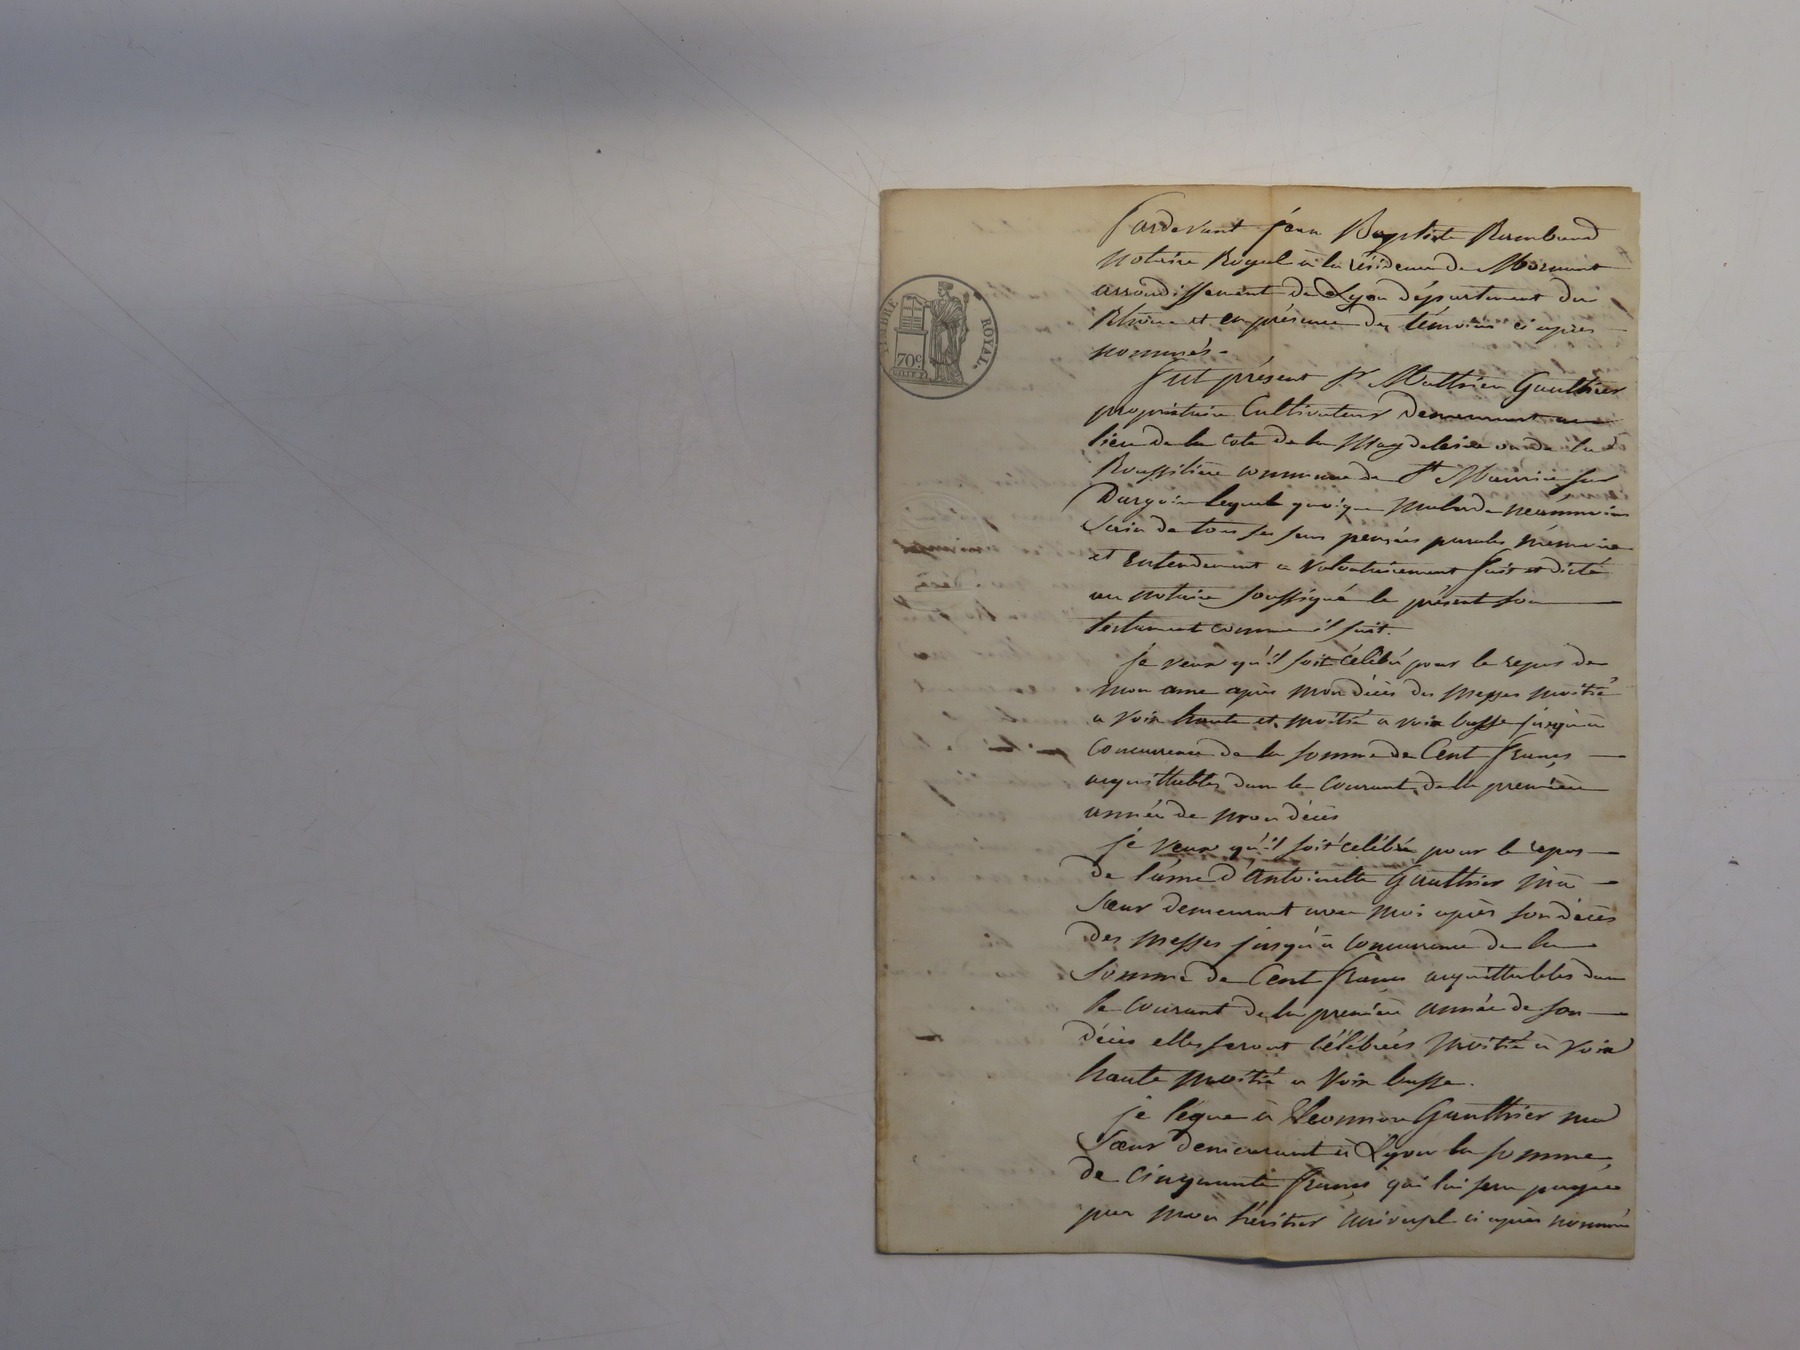 TIMBRE ROYAL
70c
Pardevant jean Baptiste Rambaud
notaire Royal à la résidence de Mornant
arrondissement de Lyon département du
Rhône et en présence des témoins ci après
nommés -
fut présent Sr Matthieu Gaulthier
propriétaire Cultivateur demeurant au
lieu de la cote de la Magdeleine ou de la
Roussiliere commune de St Maurice sur
Dargoire lequel quoique malade néanmoins
sain de tous ses sens pensées paroles mémoire
et Entendement a volontairement fait et dicté
au notaire soussigné le présent son
testament comme il suit.
je veux qu'il soit célébré pour le repos de
mon ame après mon décès des messes moitié
a voix haute et moitié a voix basse jusqu'a
Concurrence de la somme de Cent francs
acquittables dans le Courant de la première
année de mon décès
je veux qu'il soit célébré pour le repos
de l'ame d'Antoinette Gaulthier ma
Sœur demeurant avec moi après son décès
des messes jusqu'a concurrence de la
Somme de Cent francs acquittables dans
le courant de la première année de son
décès elles seront célébrées moitié à voix
haute moitié a voix basse.
je lègue à Gaulthier ma
Sœur demeurant à Lyon la somme
de cinquante francs qui lui sera payée
par mon héritier universel ci après nommé